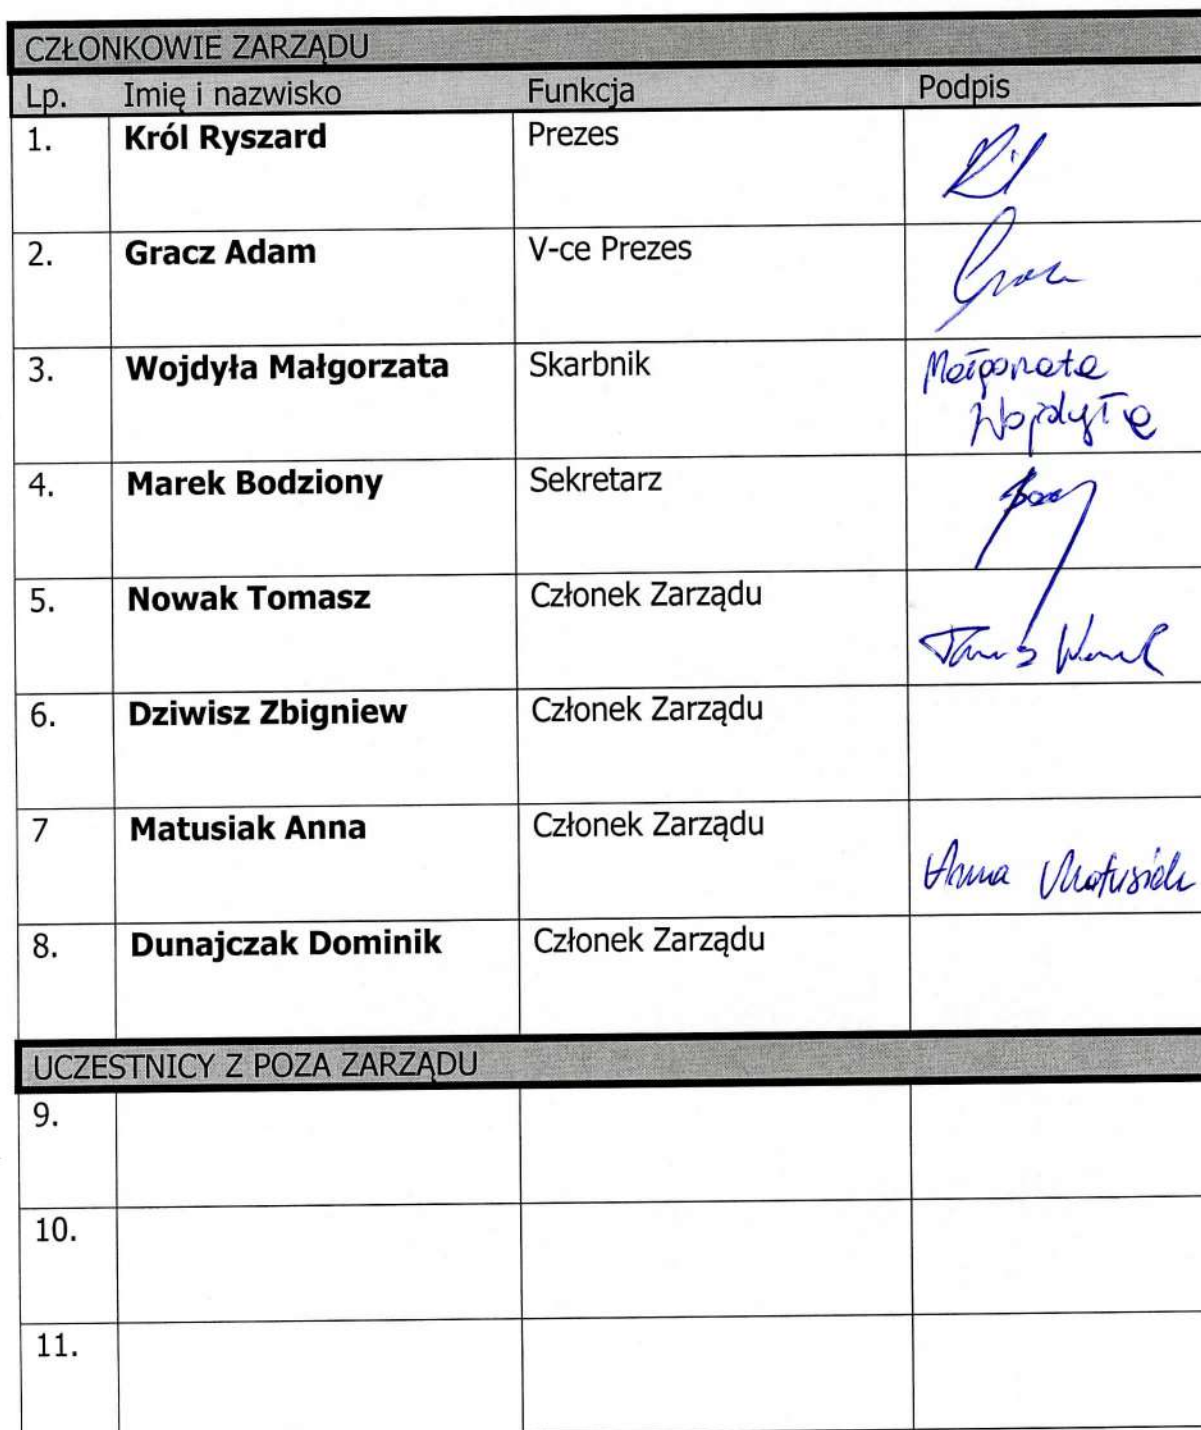 CZŁONKOWIE ZARZĄDU
Lp. Imię i nazwisko Funkcja Podpis
1. Król Ryszard Prezes
2. Gracz Adam V-ce Prezes
3. Wojdyła Małgorzata Skarbnik Małgorzata
Wojdyła
4. Marek Bodziony Sekretarz
5. Nowak Tomasz Członek Zarządu
6. Dziwisz Zbigniew Członek Zarządu
7 Matusiak Anna Członek Zarządu Anna Matusiak
8. Dunajczak Dominik Członek Zarządu
UCZESTNICY Z POZA ZARZĄDU
9.
10.
11.